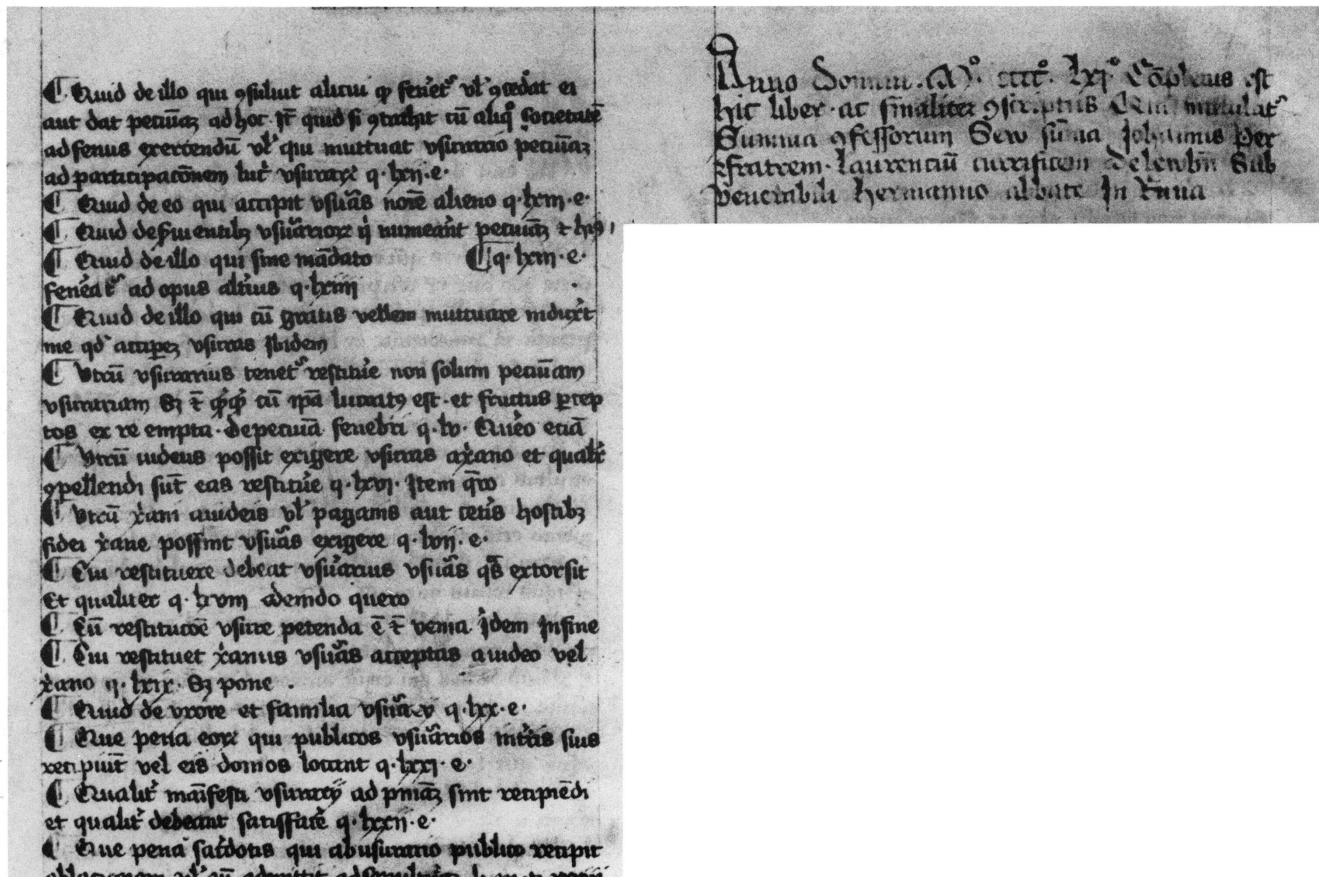 ¶ Quid de illo qui ɔsuluit alicui ꝙ feneret᷑ vl᷑ ɔcedat ei
aut dat pecuniaʒ ad hoc It̄ quid si ɔtrahit cū aliq̄ societatē
ad fenus exercendū vl᷑ qui mutuat vsurario pecuniaʒ
ad participacōnem lucͥ vsurarie q·lxij·e·
¶ Quid de eo qui accipit vsuᷓs noīe alieno q·lxiij·e·
¶ Quid de vsuᷓrioꝝ numerāt pecuniaʒ ⁊
¶ Quid de illo qui sine mādato ¶ q·lxiij·e·
feneᷓt᷑ ad opus alterius q·lxiiij
¶ Quid de illo qui cū gratis vellem mutuare induxit
me qd᷑ acciꝑeʒ vsuras Ibidem
¶ Vtrū vsurarius tenet᷑ restitue non solum pecuniam
vsurariam Sʒ ⁊ ꝙͥꝙͥ cū ip̄a lucratꝰ est·et fructus ꝑcep
tos ex re empta·de pecunia fenebri q·lv·Quero eciā
¶ Vtrū iudeus possit exigere vsuras a xͥano et qualit᷑
ɔpellendi sūt eas restitue q·lxvi·Item q̄ro
¶ Vtrū xͥani a iudeis vl᷑ paganis aut cet᷑is hostibʒ
fidei xͥane possint vsuᷓs exigere q·lxvij·e·
¶ Cui restituere debeat vsuᷓrius vsuᷓs qͣs extorsit
Et qualiter q·lxviij quero
¶ Cū restitucōe vsure petenda ē ⁊ venia Idem In fine
¶ Cui restituet xͥanus vsuᷓs acceptas a iudeo vel
xͥano q·lxix·Sʒ pone·
¶ Quid de vxore et familia vsuᷓrij q·lxx·e·
¶ Que pena eoꝝ qui publicos vsuᷓrios in t᷑ris suis
recipiūt vel eis domos locant q·lxxj·e·
¶ Qualit᷑ maīfesti vsurarij ad pn̄iaʒ sint recipiēdi
et qualit᷑ debeant satisfacͤ q·lxxij·e·
¶ Que pena sac᷑dotis qui ab usurario publico recipit
Anno Domini·Mͦ·ccccͦ·lxjͦ Cōpletus est
hic liber·ac finaliter ɔscriptus Qui intitulat᷑
Summa ɔfessorum Sew sūma Iohannis Per
fratrem·laurenciū currificem de Sub
venerabili hermanno abbate In Runa